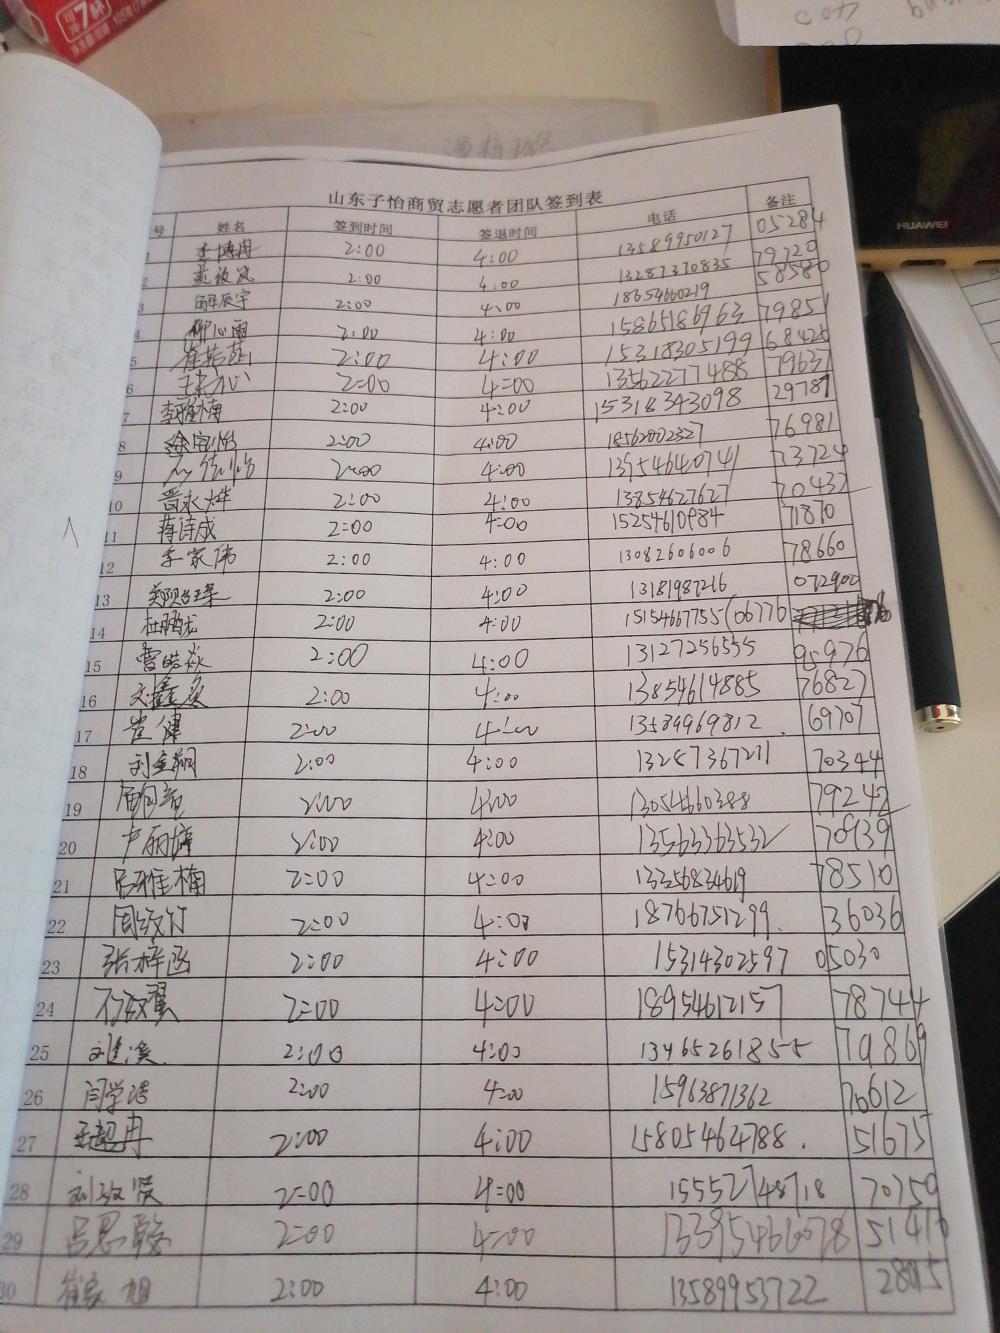 冲7杯
山东子怡商贸志愿者团队签到表
号 姓名 签到时间 签退时间 电话 备注
李博冉 2:00 4:00 13589950127 05284
2 2:00 4:00 13287370835 79220
3 2:00 4:00 18654660219 58580
柳心雨 2:00 4:00 15865186963 79851
5 2:00 4:00 15318305199 68426
6 2:00 4:00 13562277488 79631
7 李雅楠 2:00 4:00 15318343098 29787
8 徐宝怡 2:00 4:00 18562002327 76981
9 2:00 4:00 13954640741 33724
10 晋永烨 2:00 4:00 13854627627 70432
11 蒋诗成 2:00 4:00 15254610984 71870
12 李家伟 2:00 4:00 13082606006 78660
13 2:00 4:00 13181987216 072900
14 杜鹏龙 2:00 4:00 15154667755 (06776
15 曹皓焱 2:00 4:00 13127256555 95976
16 2:00 4:00 13854614885 76827
17 崔健 2:00 4:00 13589969812. 69707
18 刘金翔 2:00 4:00 13287367211 70344
19 2:00 4:00 13054660388 79242
20 卢丽婷 2:00 4:00 13563363532 70939
21 吕雅楠 2:00 4:00 13356834619 78510
22 周放竹 2:00 4:00 18766751299. 36036
23 张梓函 2:00 4:00 15314302597 05030
24 2:00 4:00 18954612157 78744
25 2:00 4:00 13465261855 79869
26 闫学浩 2:00 4:00 15963871362 70612
27 2:00 4:00 15805464788. 51675
28 刘放贤 2:00 4:00 15552748718 70750
29 吕思 2:00 4:00 13395466078 51410
30 崔家旭 2:00 4:00 13589953722 28015
HUAWEI